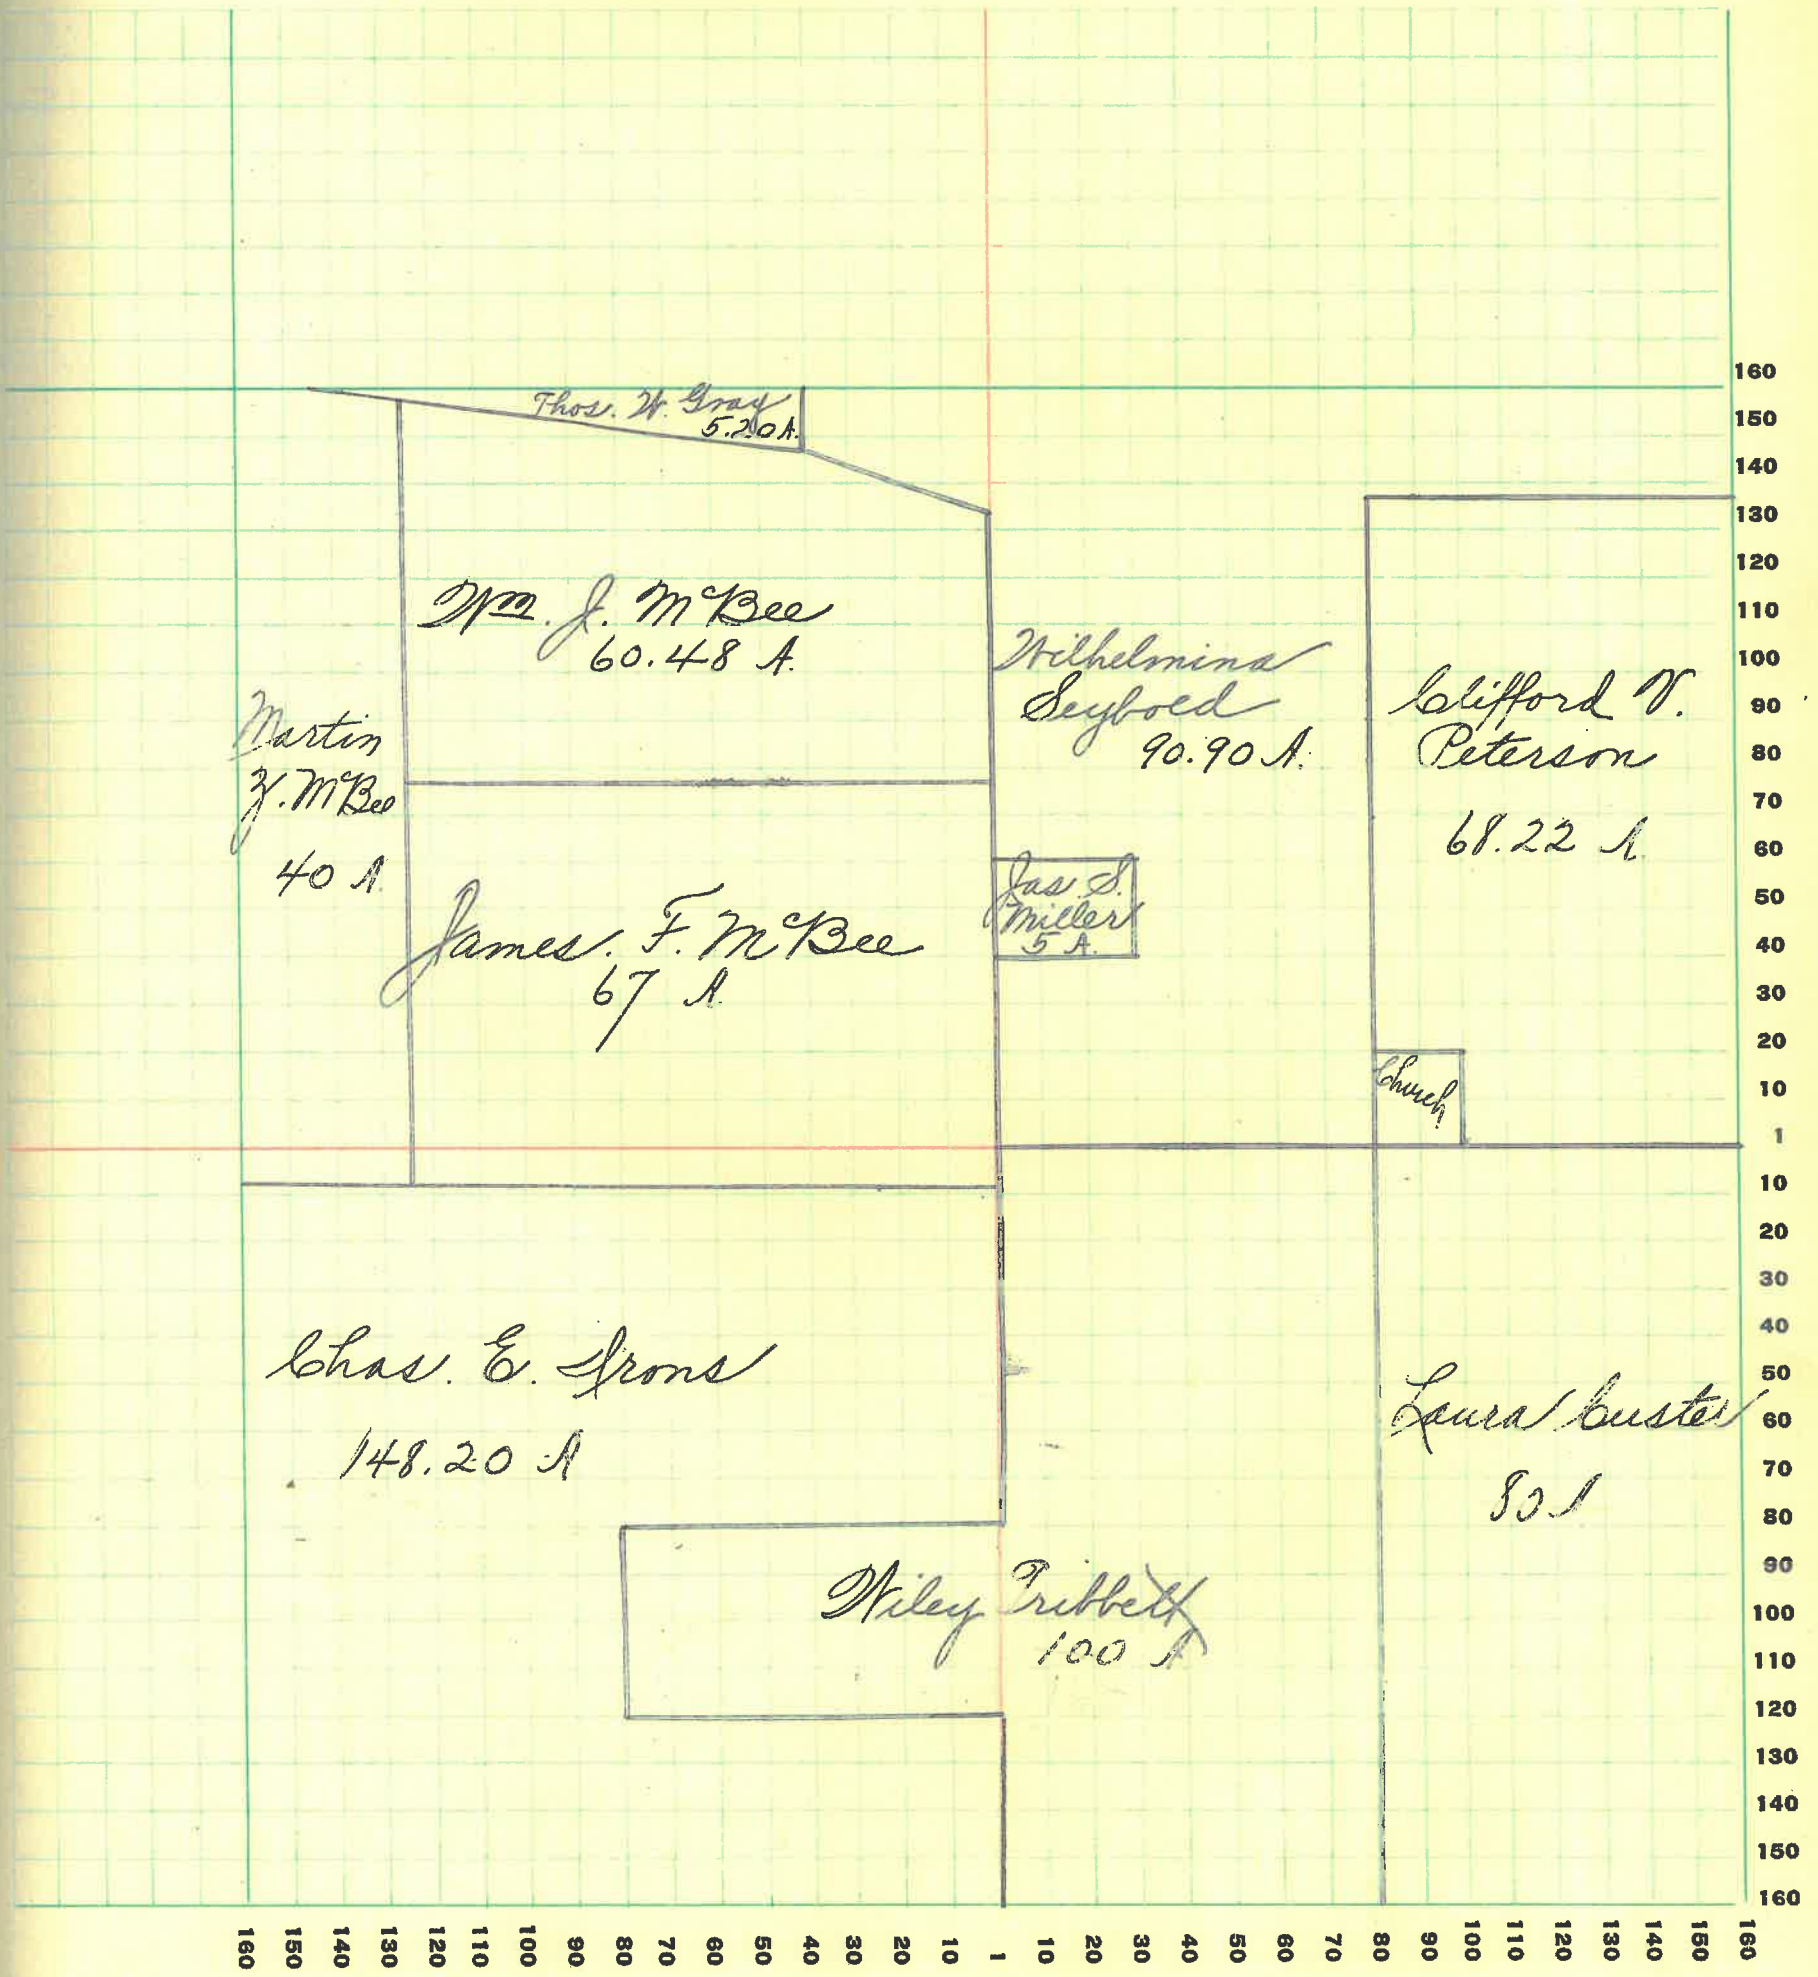 Thos. W. Gray
5.20 A.
Wm. J. McBee
60.48 A.
Martin
McBee
40 A.
James. F. McBee
67 A.
Wilhelmina
Seybold
90.90 A.
Jas. S.
Miller
5 A.
Clifford V.
Peterson
68.22 A.
Church
Chas. E. Irons
148.20 A
Wiley Tribbett
100 A
Laura Custer
80 A
160
150
140
130
120
110
100
90
80
70
60
50
40
30
20
10
1
10
20
30
40
50
60
70
80
90
100
110
120
130
140
150
160
160 150 140 130 120 110 100 90 80 70 60 50 40 30 20 10 1 10 20 30 40 50 60 70 80 90 100 110 120 130 140 150 160